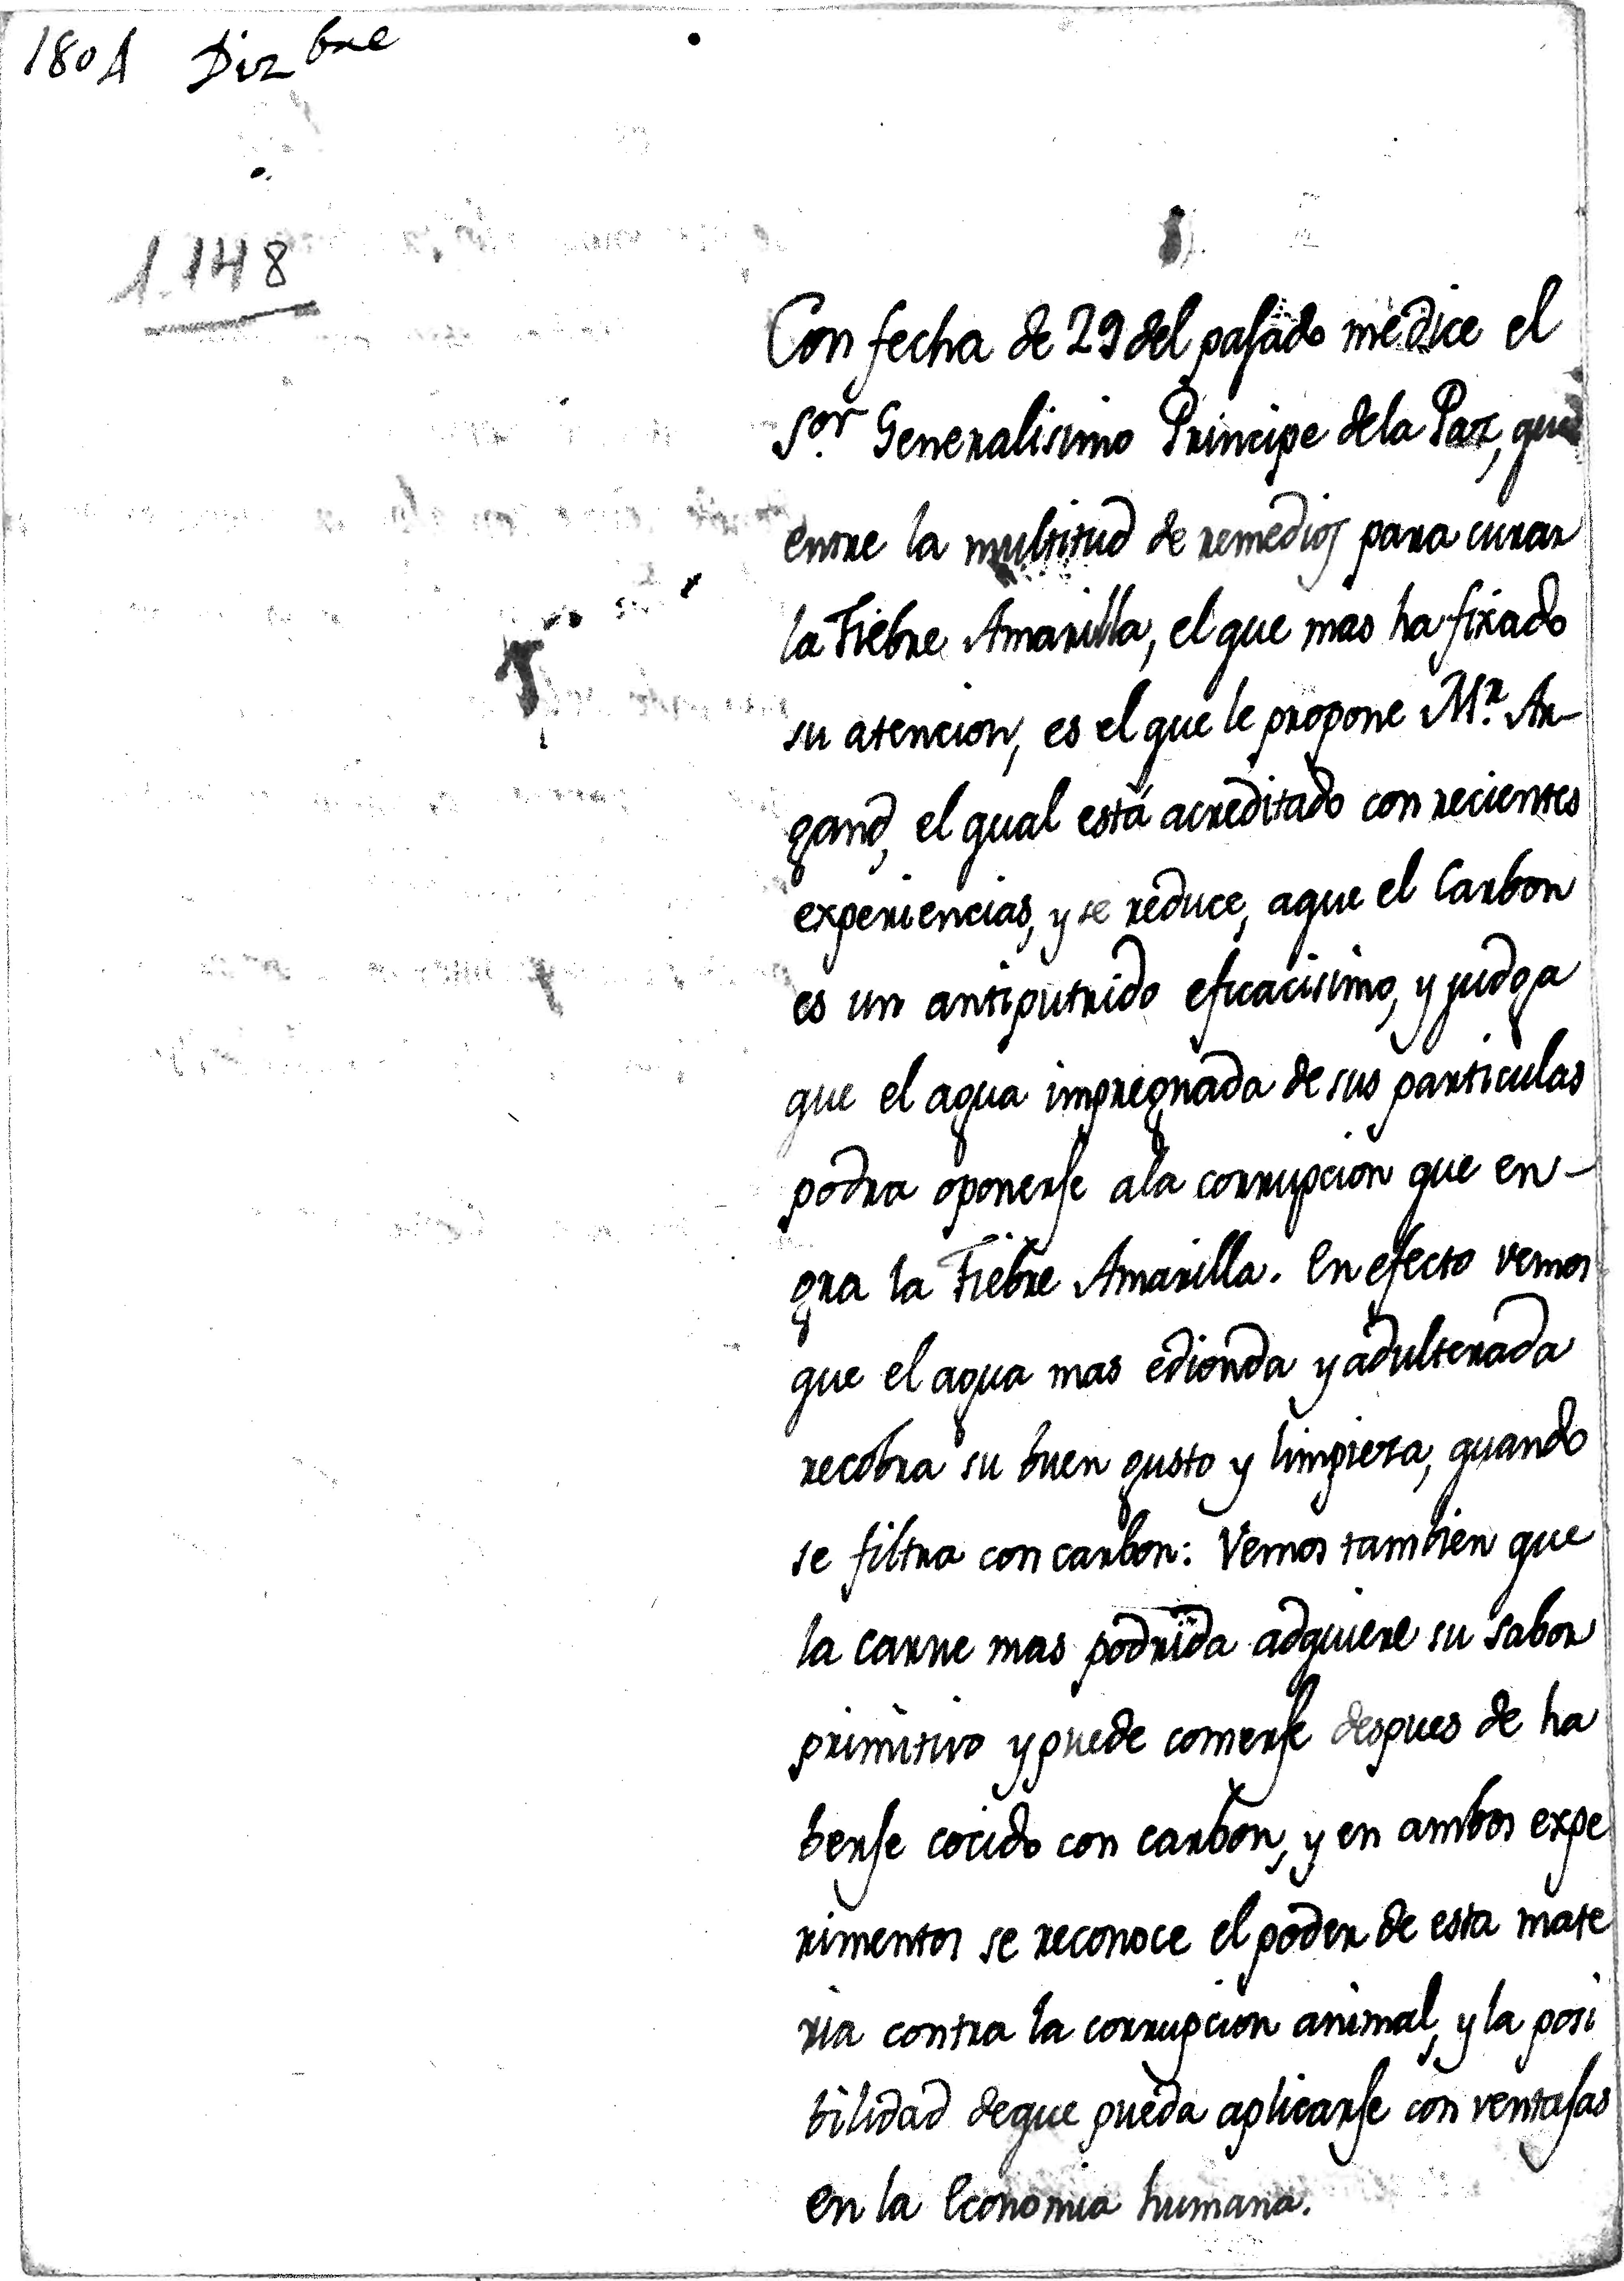 1804 Dizbre
1.148
Con fecha de 29 del pasado me dice el
Sor. Generalisimo Principe dela Paz, que
entre la multitud de remedios para curar
la Fiebre Amarilla, el que mas ha fixado
su atencion, es el que le propone Mr. Ar-
gand, el qual está acreditado con recientes
experiencias, y se reduce, aque el Carbon
es un antiputrido eficacisimo, y judga
que el agua impregnada de sus particulas
podra oponerse ala corrupcion que en-
gra la Fiebre Amarilla. En efecto vemos
que el agua mas edionda y adulterada
recobra su buen gusto y limpieza, quando
se filtra con carbon: Vemos tambien que
la carne mas podrida adquiere su sabor
primitivo y puede comerse despues de ha
berse cocido con carbon, y en ambos expe
rimentos se reconoce el poder de esta mate
ria contra la corrupcion animal, y la posi
bilidad deque pueda aplicarse con ventajas
en la Economia humana.